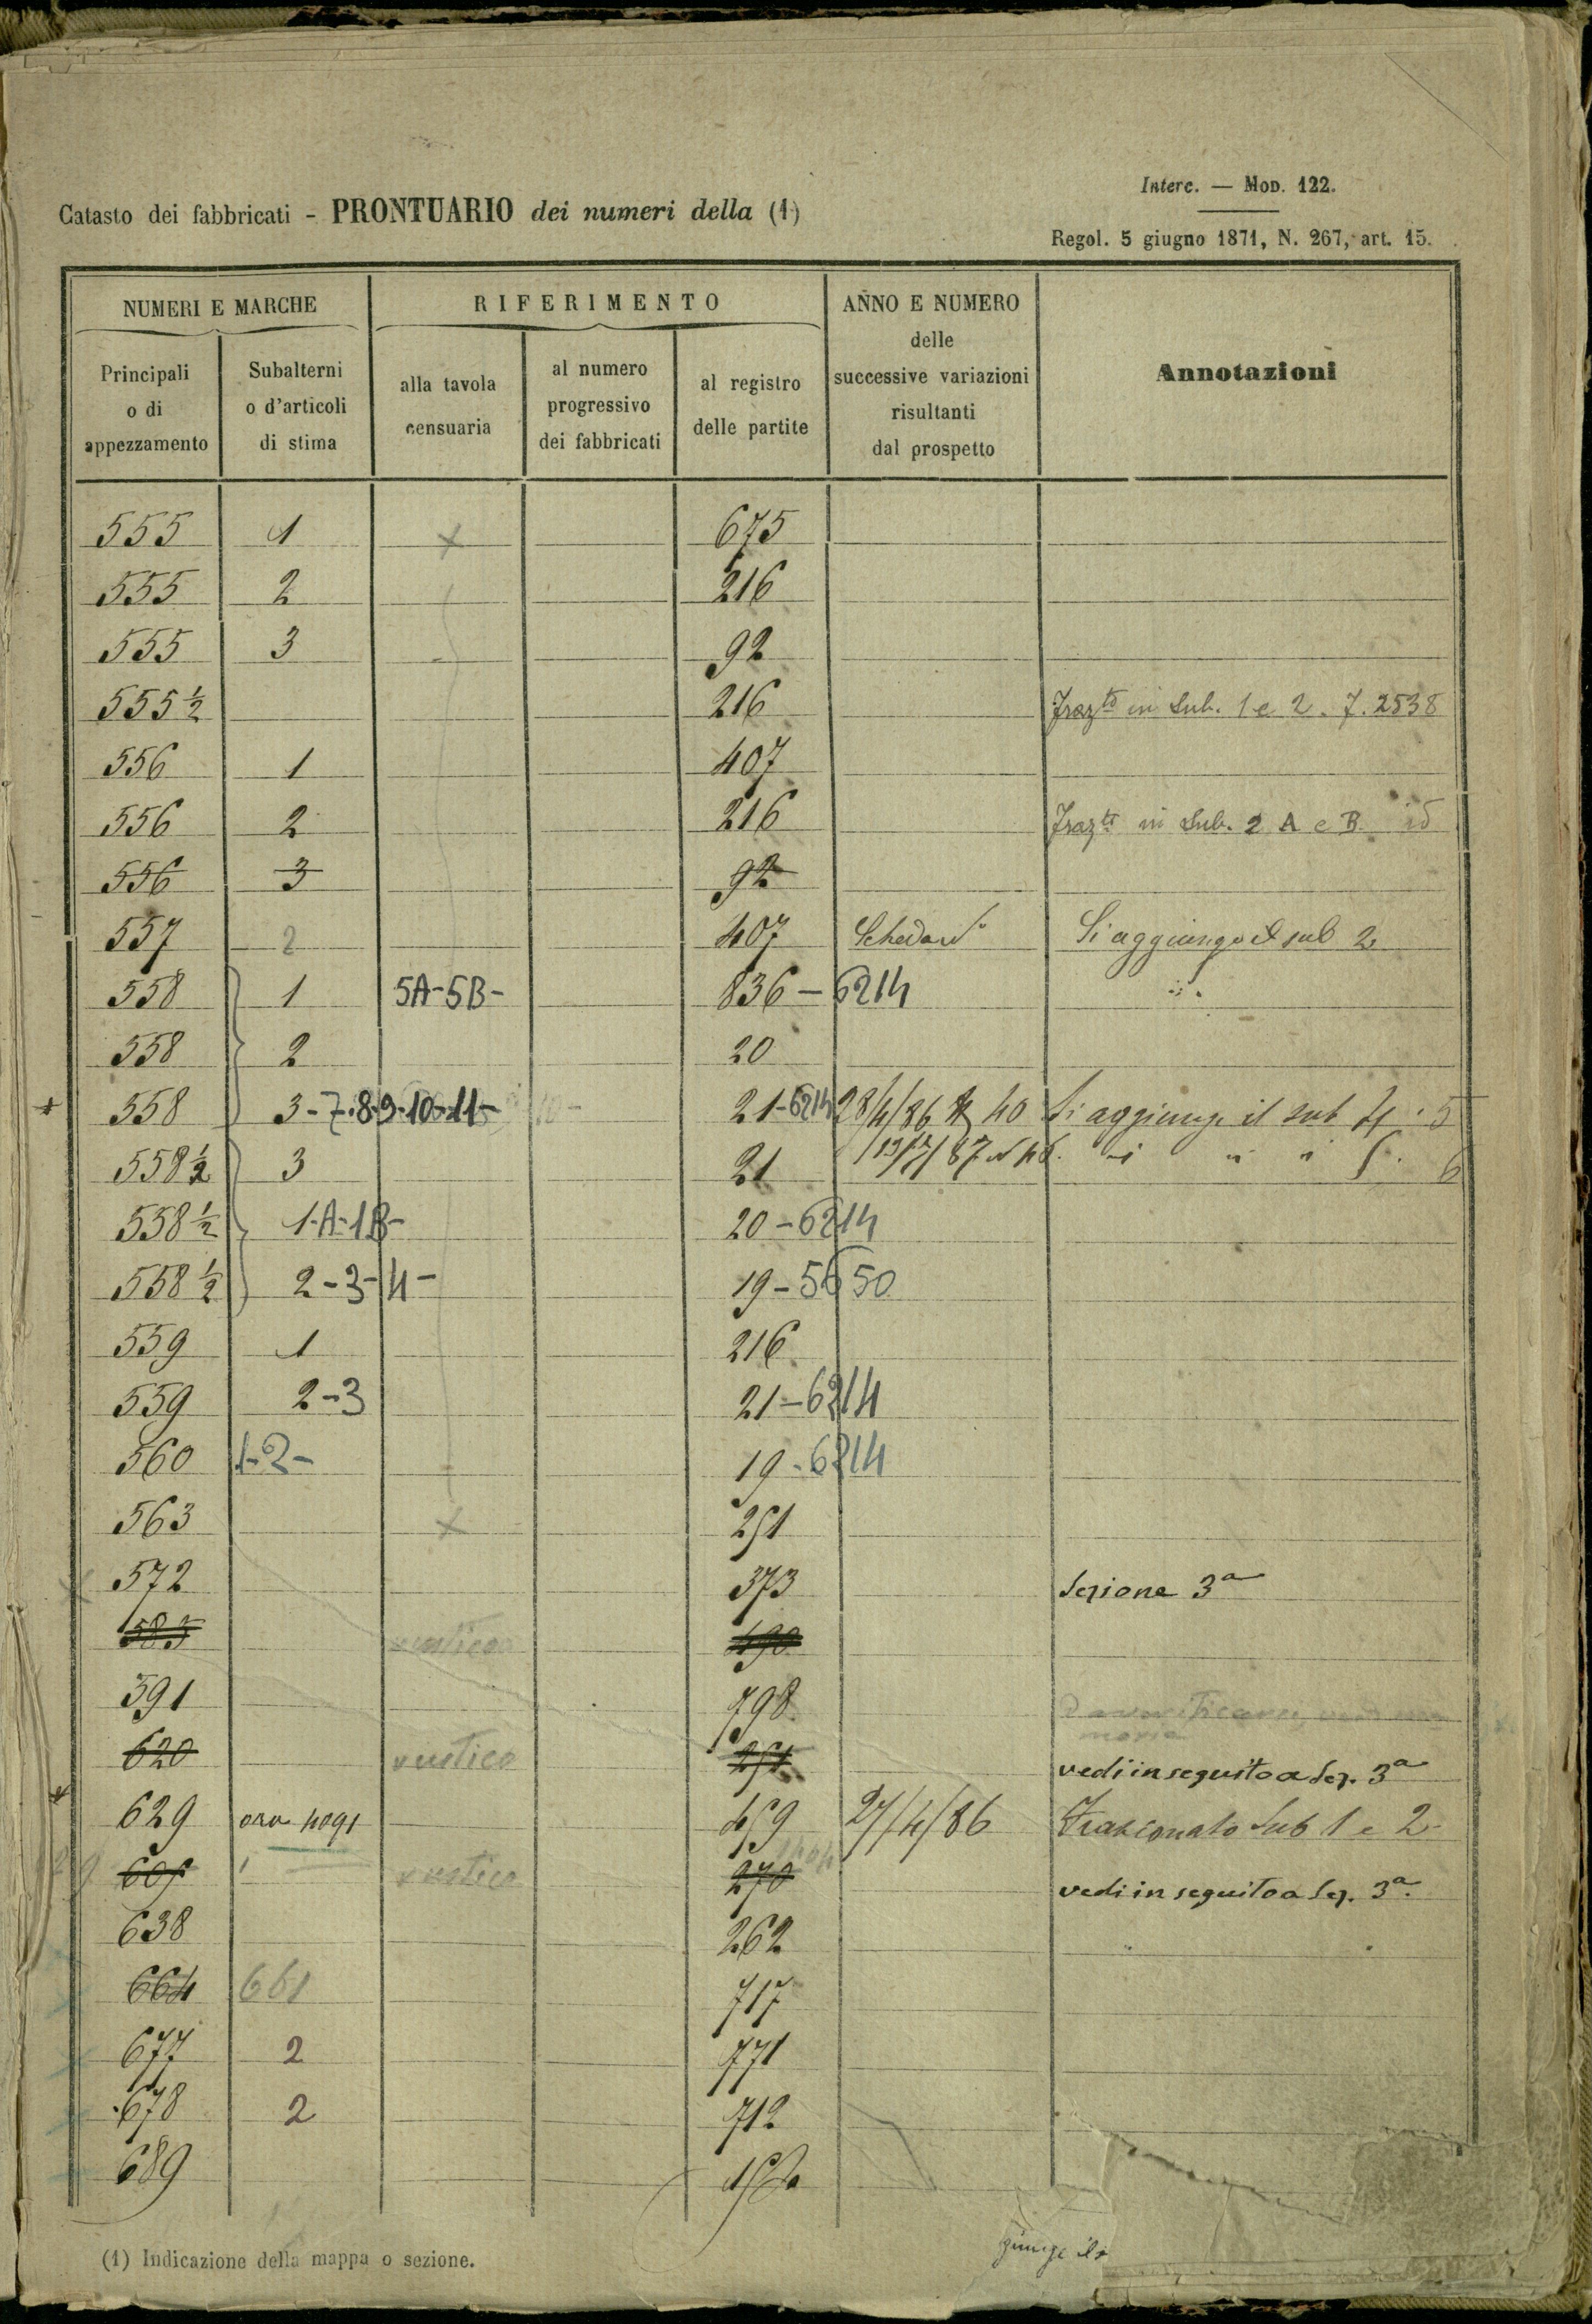 Interc. — Mod. 122.
Catasto dei fabbricati - PRONTUARIO dei numeri della (1)
Regol. 5 giugno 1871, N. 267, art. 15.
NUMERI E MARCHE RIFERIMENTO ANNO E NUMERO delle successive variazioni risultanti dal prospetto Annotazioni
Principali o di appezzamento Subalterni o d'articoli di stima alla tavola censuaria al numero progressivo dei fabbricati al registro delle partite
555 1 675
555 2 216
555 3 92
555 ½ 216 Fraz.to in Sub. 1 e 2. 7. 2538
556 1 407
556 2 216 Fraz.to in Sub. 2 A e B. id
556 3 92
557 2 407 Si aggiunge il sub 2
558 1 5A-5B- 836 - 6214
558 2 20
558 3-7.8.9.10.11- 21-6214 28/4/86 40 Si aggiunge il sub 4. 5
558 ½ 3 21 6
558 ½ 1-A-1B- 20-6214
558 ½ 2-3-4- 19-5650
559 1 216
559 2-3 21-6214
560 1-2- 19-6214
563 251
572 373 Sezione 3a
585 rustico 490
591 798
620 rustico 251 vedi in seguito a Sez. 3a
629 ora 4091 459 27/4/86 Frazionato Sub 1 e 2
rustico 270 vedi in seguito a Sez. 3a.
638 262
664 661 717
677 2 771
678 2 712
689
(1) Indicazione della mappa o sezione.
giunge il